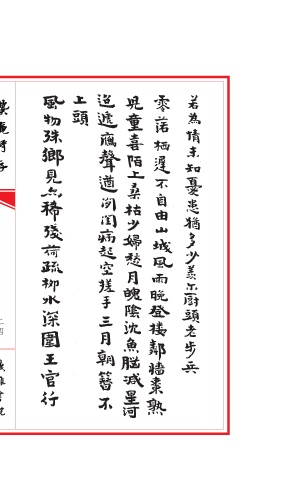 若為情未知憂患猶多少羨尒廚頭老步兵
零諾栖遲不自由山城風雨晚登樓鄰牆棗熟
兒童喜陌上桑枯少婦愁月魄陰沈魚腦減星河
迢遞雁聲遒沏閏病起空搓手三月朝簪不
上頭
風物殊鄉見亦稀殘荷疏柳水深圍王官行
二四